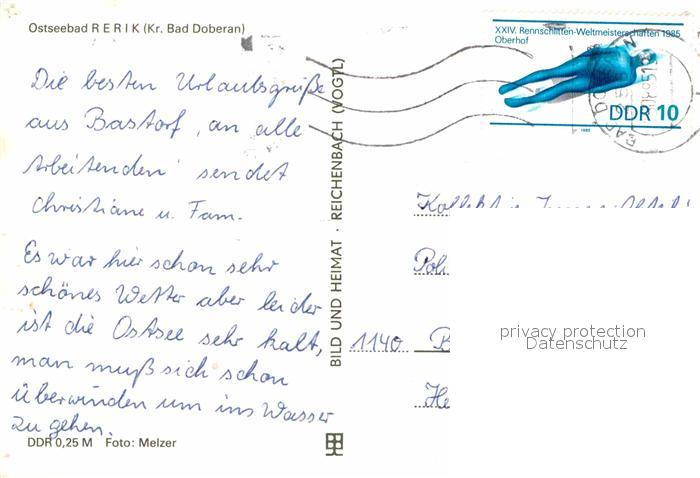 Ostseebad R E R I K (Kr. Bad Doberan)
Die besten Urlaubsgrüße
aus Bastorf, an alle
Arbeitenden sendet
Christiane u. Fam.
Es war hier schon sehr
schönes Wetter aber leider
ist die Ostsee sehr kalt,
man muß sich schon
überwinden um ins Wasser
zu gehen.
DDR 0,25 M Foto: Melzer
BILD UND HEIMAT · REICHENBACH (VOGTL)
XXIV. Rennschlitten-Weltmeisterschaften 1985
Oberhof
DDR 10
1985
Poli
1140 B
He
privacy protection
Datenschutz